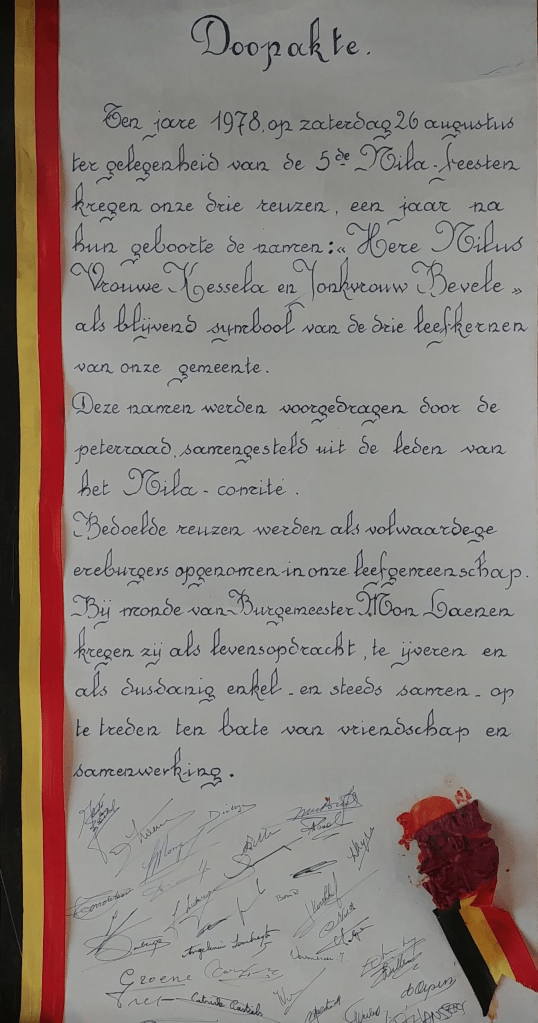 Doopakte.
Ten jare 1978, op zaterdag 26 augustus
ter gelegenheid van de 5de Nila-feesten
kregen onze drie reuzen, een jaar na
hun geboorte de namen: « Here Nilus
Vrouwe Kessela en Jonkvrouw Bevele »
als blijvend symbool van de drie leefkernen
van onze gemeente.
Deze namen werden voorgedragen door de
peterraad, samengesteld uit de leden van
het Nila-comité.
Bedoelde reuzen werden als volwaardege
ereburgers opgenomen in onze leefgemeenschap.
Bij monde van Burgemeester Mon Laenen
kregen zij als levensopdracht, te ijveren en
als dusdanig enkel - en steeds samen - op
te treden ten bate van vriendschap en
samenwerking.
Groene